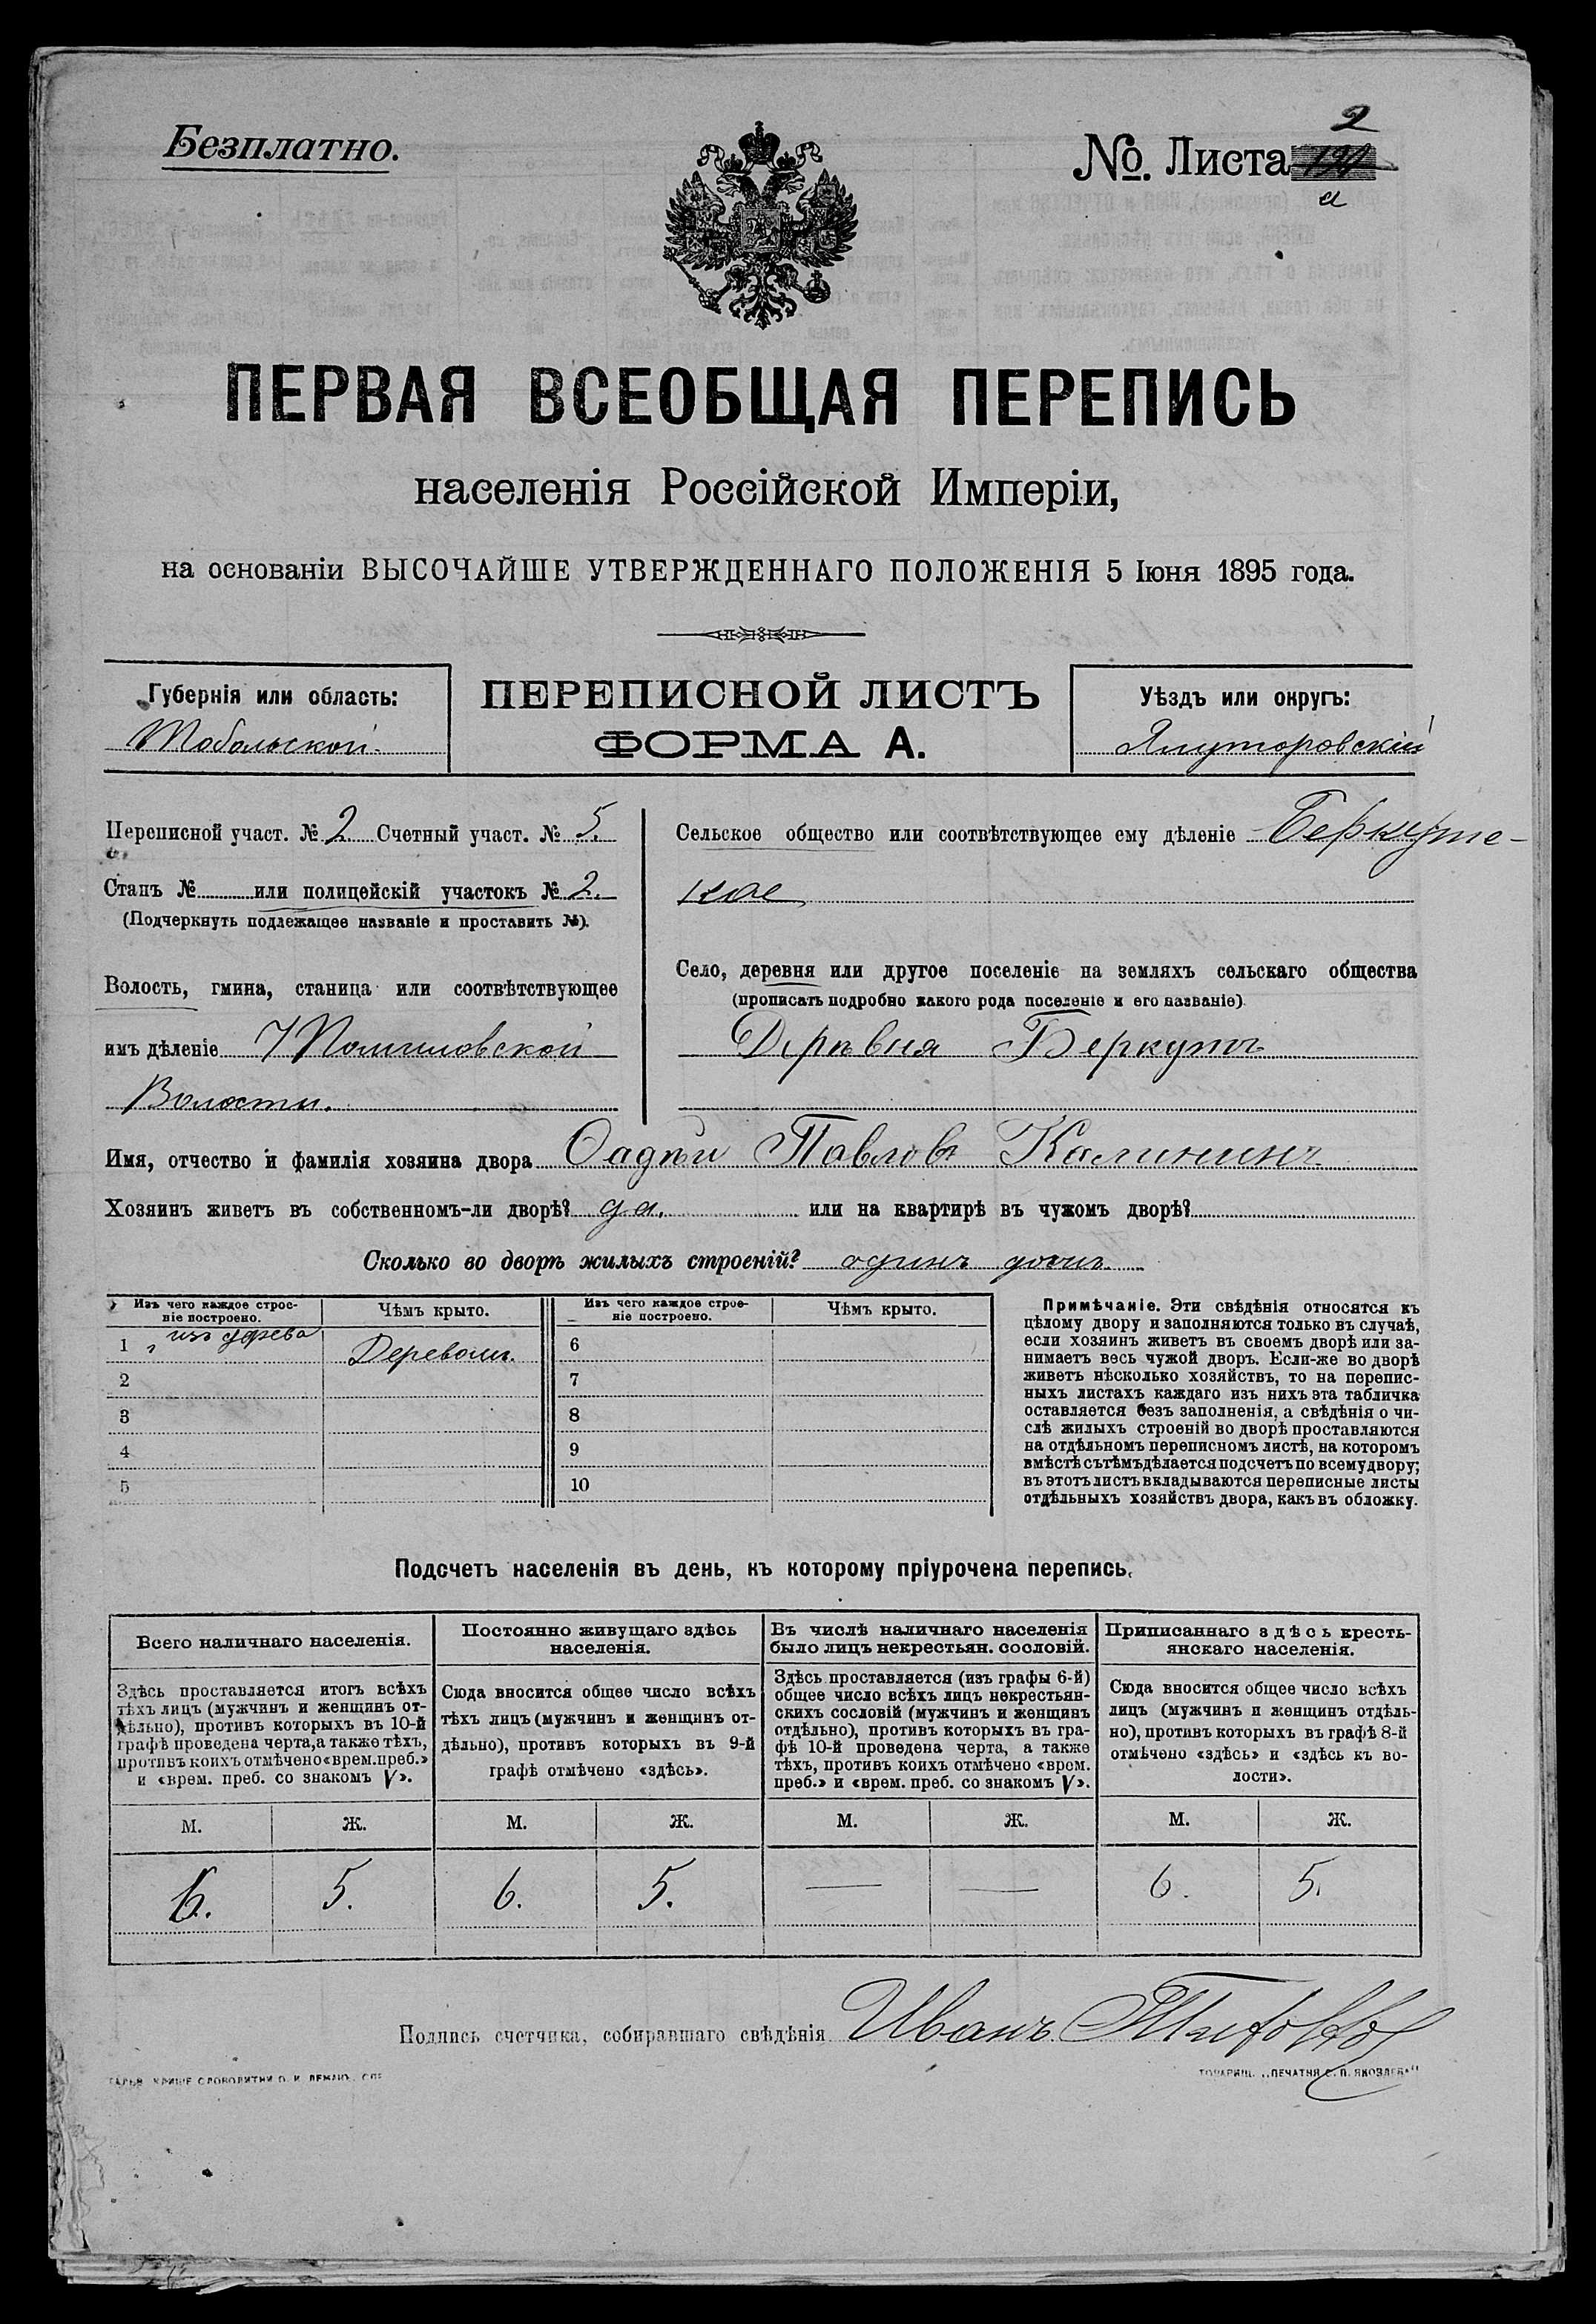 Безплатно.
№ Листа 2
а
ПЕРВАЯ ВСЕОБЩАЯ ПЕРЕПИСЬ
населенія Россійской Имперіи,
на основаніи ВЫСОЧАЙШЕ УТВЕРЖДЕННАГО ПОЛОЖЕНІЯ 5 Іюня 1895 года.
Губернія или область:
Тобольской
ПЕРЕПИСНОЙ ЛИСТЪ
ФОРМА А.
Уѣздъ или округъ:
Ялуторовскій
Переписной участ. № 2 Счетный участ. № 5.
Станъ № или полицейскій участокъ № 2.
(Подчеркнуть подлежащее названіе и проставить №).
Волость, гмина, станица или соотвѣтствующее
имъ дѣленіе
Волости.
Сельское общество или соотвѣтствующее ему дѣленіе Беркутс-
кое
Село, деревня или другое поселеніе на земляхъ сельскаго общества
(прописать подробно какого рода поселеніе и его названіе)
Деревня Беркутъ
Имя, отчество и фамилія хозяина двора Павловъ Калининъ
Хозяинъ живетъ въ собственномъ-ли дворѣ? да. или на квартирѣ въ чужомъ дворѣ?
Сколько во дворѣ жилыхъ строеній? одинъ домъ
Изъ чего каждое строе-
ніе построено.
Чѣмъ крыто.
1 изъ дерева
Деревомъ.
2
3
4
5
Изъ чего каждое строе-
ніе построено.
Чѣмъ крыто.
6
7
8
9
10
Примѣчаніе. Эти свѣдѣнія относятся къ
цѣлому двору и заполняются только въ случаѣ,
если хозяинъ живетъ въ своемъ дворѣ или за-
нимаетъ весь чужой дворъ. Если-же во дворѣ
живетъ нѣсколько хозяйствъ, то на перепис-
ныхъ листахъ каждаго изъ нихъ эта табличка
оставляется безъ заполненія, а свѣдѣнія о чи-
слѣ жилыхъ строеній во дворѣ проставляются
на отдѣльномъ переписномъ листѣ, на которомъ
вмѣстѣ съ тѣмъ дѣлается подсчетъ по всему двору;
въ этотъ листъ вкладываются переписные листы
отдѣльныхъ хозяйствъ двора, какъ въ обложку.
Подсчетъ населенія въ день, къ которому пріурочена перепись.
Всего наличнаго населенія.
Здѣсь проставляется итогъ всѣхъ
тѣхъ лицъ (мужчинъ и женщинъ от-
дѣльно), противъ которыхъ въ 10-й
графѣ проведена черта, а также тѣхъ,
противъ коихъ отмѣчено «врем. преб.»
и «врем. преб. со знакомъ V».
М. Ж.
6. 5.
Постоянно живущаго здѣсь
населенія.
Сюда вносится общее число всѣхъ
тѣхъ лицъ (мужчинъ и женщинъ от-
дѣльно), противъ которыхъ въ 9-й
графѣ отмѣчено «здѣсь».
М. Ж.
6. 5.
Въ числѣ наличнаго населенія
было лицъ некрестьян. сословій.
Здѣсь проставляется (изъ графы 6-й)
общее число всѣхъ лицъ некрестьян-
скихъ сословій (мужчинъ и женщинъ
отдѣльно), противъ которыхъ въ гра-
фѣ 10-й проведена черта, а также
тѣхъ, противъ коихъ отмѣчено «врем.
преб.» и «врем. преб. со знакомъ V».
М. Ж.
— —
Приписаннаго здѣсь кресть-
янскаго населенія.
Сюда вносится общее число всѣхъ
лицъ (мужчинъ и женщинъ отдѣль-
но), противъ которыхъ въ графѣ 8-й
отмѣчено «здѣсь» и «здѣсь къ во-
лости».
М. Ж.
6. 5.
Подпись счетчика, собиравшаго свѣдѣнія Иванъ
ТОВАРИЩ. „ПЕЧАТНЯ С. П. ЯКОВЛЕВА"